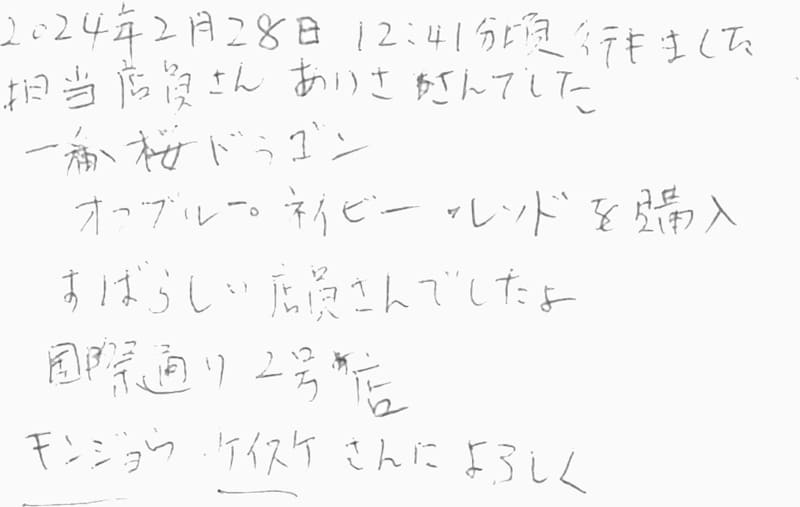 2024年2月28日 12:41分頃 行きました
担当店員さん ありささんでした
一番 桜ドラゴン
オフブルー。ネイビー・レッドを購入
すばらしい店員さんでしたよ
国際通り2号店
モンジョウ ケイスケさんによろしく